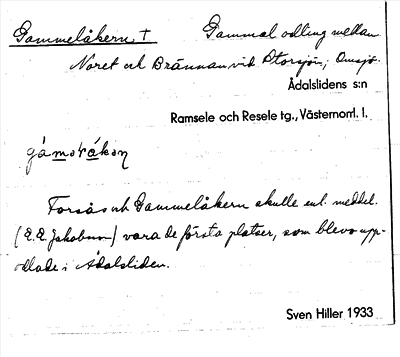 Gammelåkern † Gammal odling mellan
Noret och Brännan vid Storsjön, Omsjö.
Ådalslidens s:n
Ramsele och Resele tg., Västernorrl. l.
Forsås och Gammelåkern skulle enl. meddel.
(E.E. Jakobsson) vara de första platser, som blevo upp-
odlade i Ådalsliden.
Sven Hiller 1933